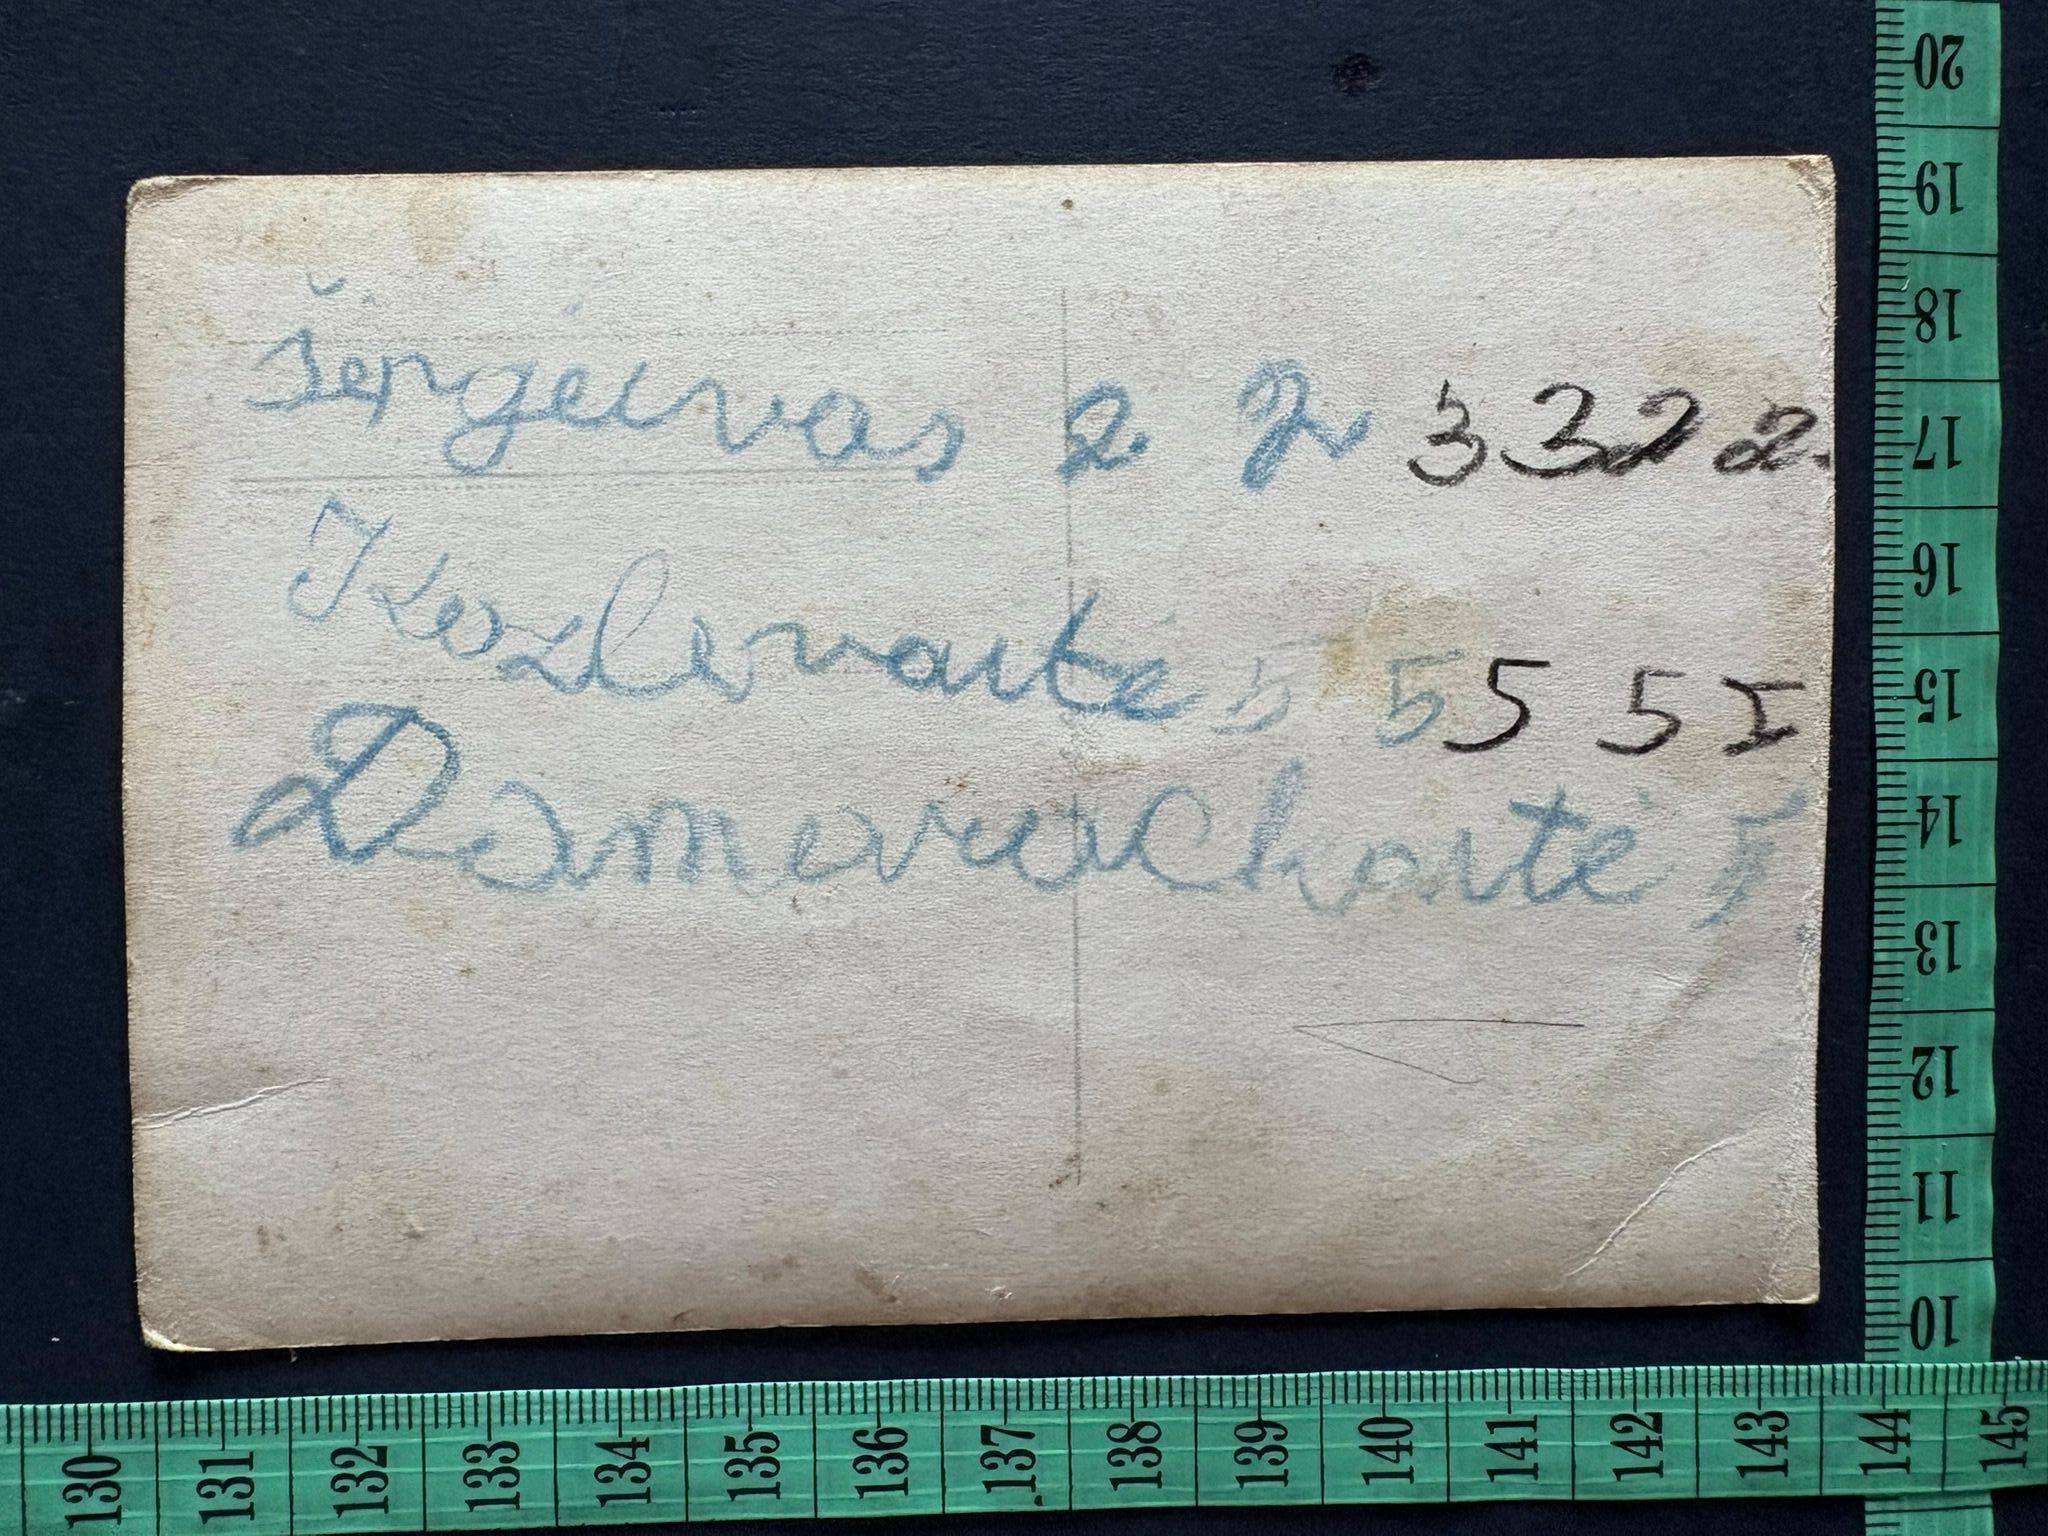 Šergeivas 2 2 3 3 2 2 2.
Kozlovaitė 5 5 5 5 I
Damaruckaitė 5
20
19
18
17
16
15
14
13
12
11
10
130 131 132 133 134 135 136 137 138 139 140 141 142 143 144 145